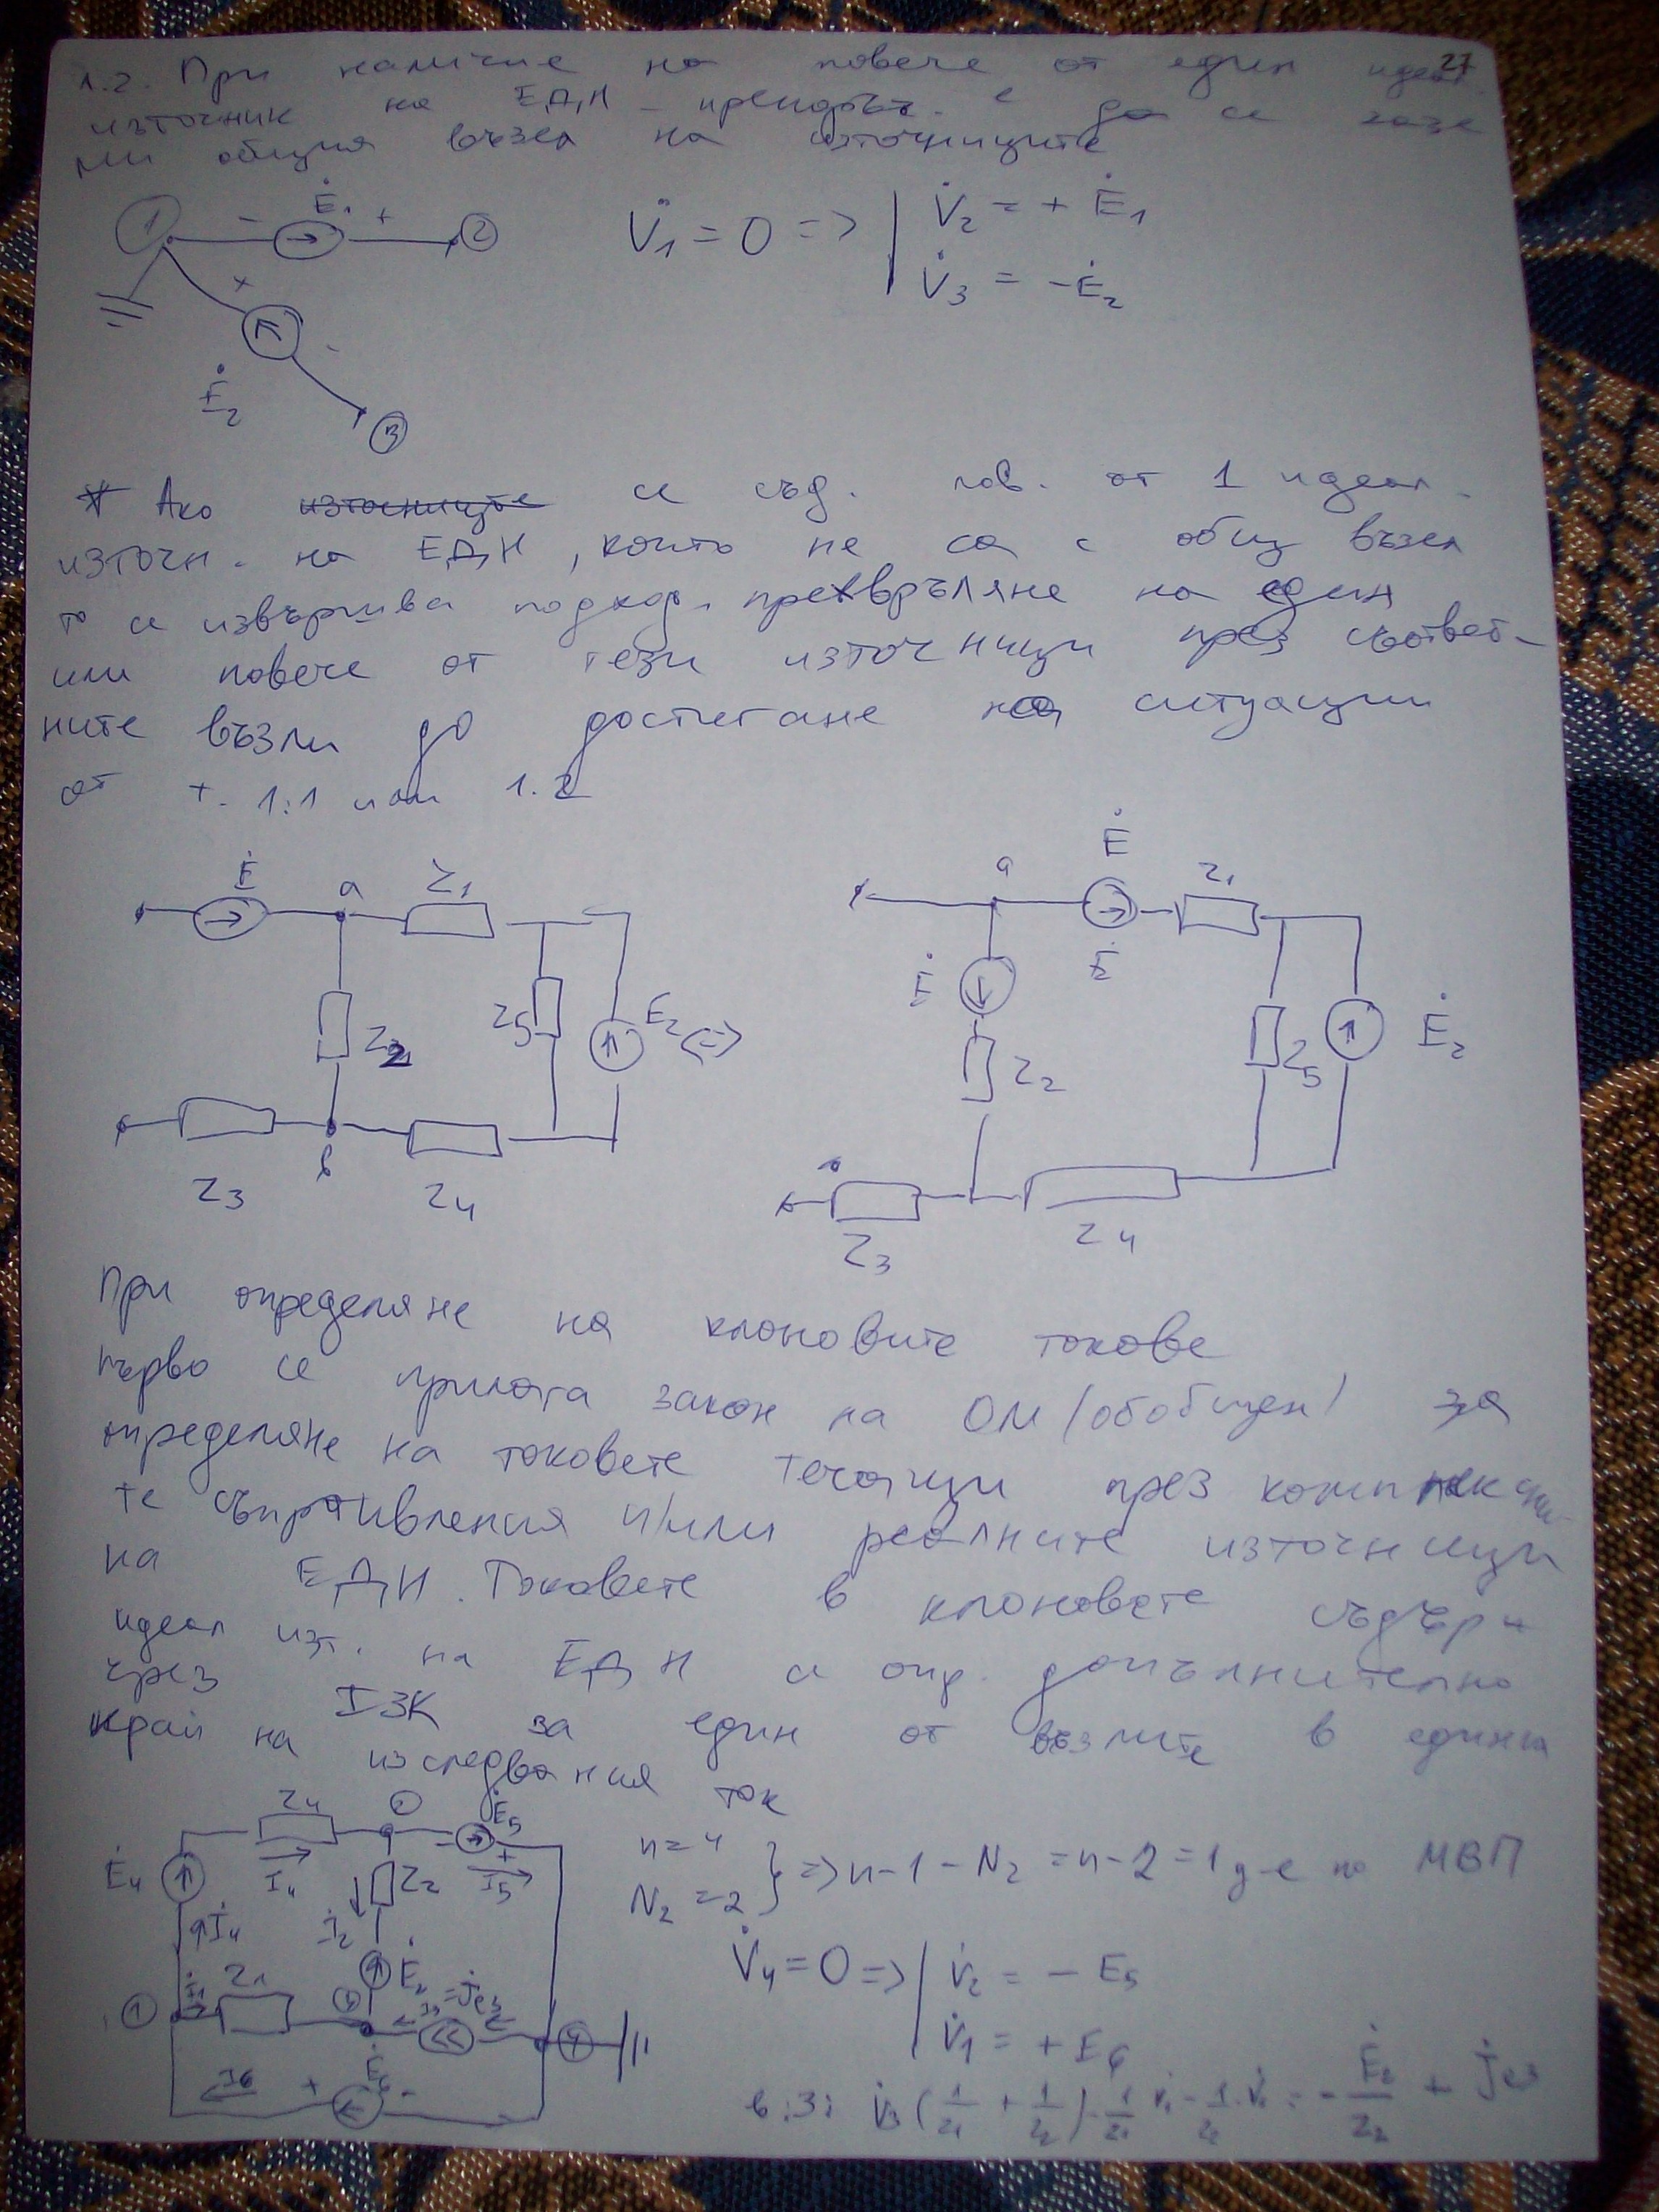 27
1.2. При наличие на повече от един идеал.
източник на ЕДН - препоръч. е да се зазе
ми общия възел на източниците
1 - Ė1 + 2
V̇1 = 0 => V̇2 = + Ė1
V̇3 = - Ė2
+ - Ė2 3
* Ако се съд. пов. от 1 идеал.
източн. на ЕДН, които не са с общ възел
то се извършва подход. прехвърляне на един
или повече от тези източници през съответ-
ните възли до достигане на ситуации
от т. 1.1 или 1.2
Ė a Z1
Z2 Z5 E2 <=>
b
Z3 Z4
a Ė Z1
Ė Ė
Z2 Z5 Ė2
Z3 Z4
При определяне на клоновите токове
първо се прилага закон на ОМ (обобщен) за
определяне на токовете течащи през комплексни-
те съпротивления и/или реалните източници
на ЕДН. Токовете в клоновете съдърж
идеал изт. на ЕДН се опр. допълнително
чрез IЗК за един от възлите в единия
край на изследвания ток
Z4 Ė5
Ė4 I4 Z2 + I5
İ4 İ2
İ1 Z1 Ė2 3 I3 = J̇e3
1 4
I6 + Ė6 -
n = 4
N2 = 2 } => n - 1 - N2 = n - 2 = 1 у-е по МВП
V̇4 = 0 => V̇2 = - E5
V̇1 = + E6
в.3: V̇3 (1/Z1 + 1/Z2) - 1/Z1 V̇1 - 1/Z2 . V̇2 = - Ė2/Z2 + J̇e3